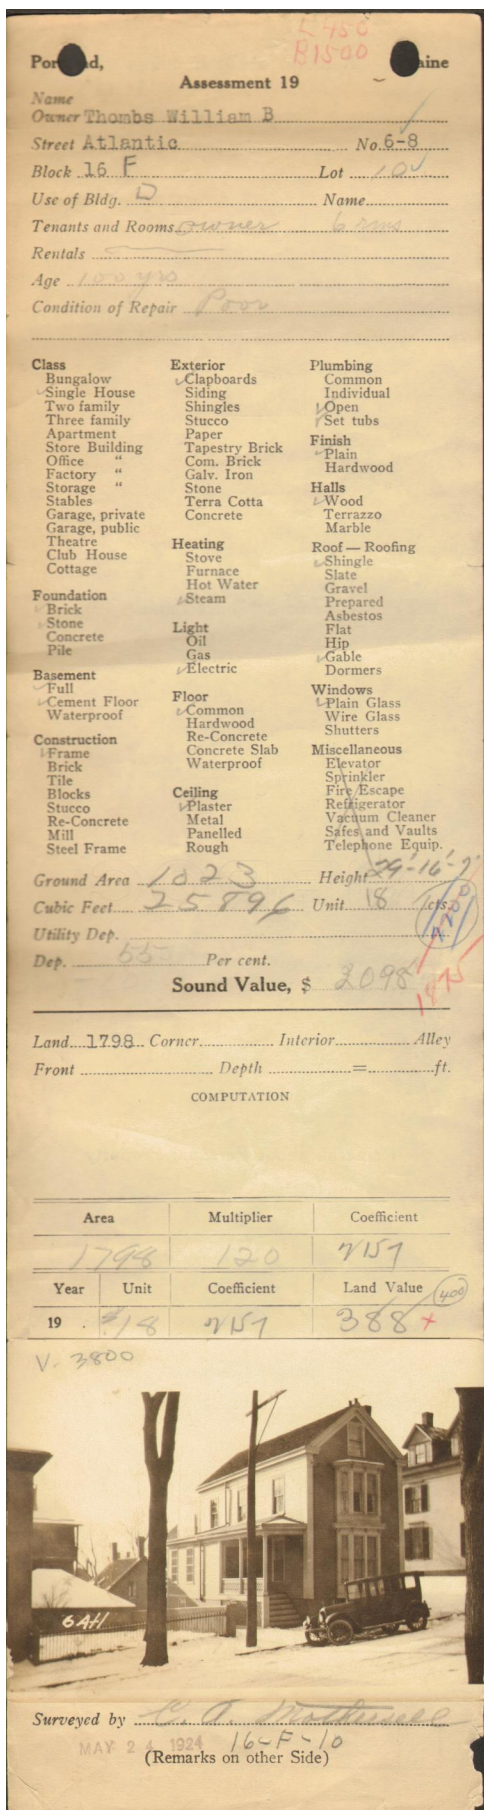 L 450
B1500
Portland, Maine
Assessment 19
Name
Owner Thombs William B
Street Atlantic No. 6-8
Block 16 F Lot 10
Use of Bldg. D Name
Tenants and Rooms owner 6 rms
Rentals
Age 100 yrs
Condition of Repair Poor
Class
Bungalow
Single House
Two family
Three family
Apartment
Store Building
Office "
Factory "
Storage "
Stables
Garage, private
Garage, public
Theatre
Club House
Cottage
Foundation
Brick
Stone
Concrete
Pile
Basement
Full
Cement Floor
Waterproof
Construction
Frame
Brick
Tile
Blocks
Stucco
Re-Concrete
Mill
Steel Frame
Exterior
Clapboards
Siding
Shingles
Stucco
Paper
Tapestry Brick
Com. Brick
Galv. Iron
Stone
Terra Cotta
Concrete
Heating
Stove
Furnace
Hot Water
Steam
Light
Oil
Gas
Electric
Floor
Common
Hardwood
Re-Concrete
Concrete Slab
Waterproof
Ceiling
Plaster
Metal
Panelled
Rough
Plumbing
Common
Individual
Open
Set tubs
Finish
Plain
Hardwood
Halls
Wood
Terrazzo
Marble
Roof — Roofing
Shingle
Slate
Gravel
Prepared
Asbestos
Flat
Hip
Gable
Dormers
Windows
Plain Glass
Wire Glass
Shutters
Miscellaneous
Elevator
Sprinkler
Fire Escape
Refrigerator
Vacuum Cleaner
Safes and Vaults
Telephone Equip.
Ground Area 1023 Height
Cubic Feet 25896 Unit 18 cts.
Utility Dep.
Dep. 55 Per cent.
Sound Value, $ 2098
1875
Land 1798 Corner Interior Alley
Front Depth = ft.
COMPUTATION
Area Multiplier Coefficient
1798 120 2157
Year Unit Coefficient Land Value 400
19 . .18 2157 388 x
V- 3800
6AH
Surveyed by C. A.
MAY 24 1924 16-F-10
(Remarks on other Side)